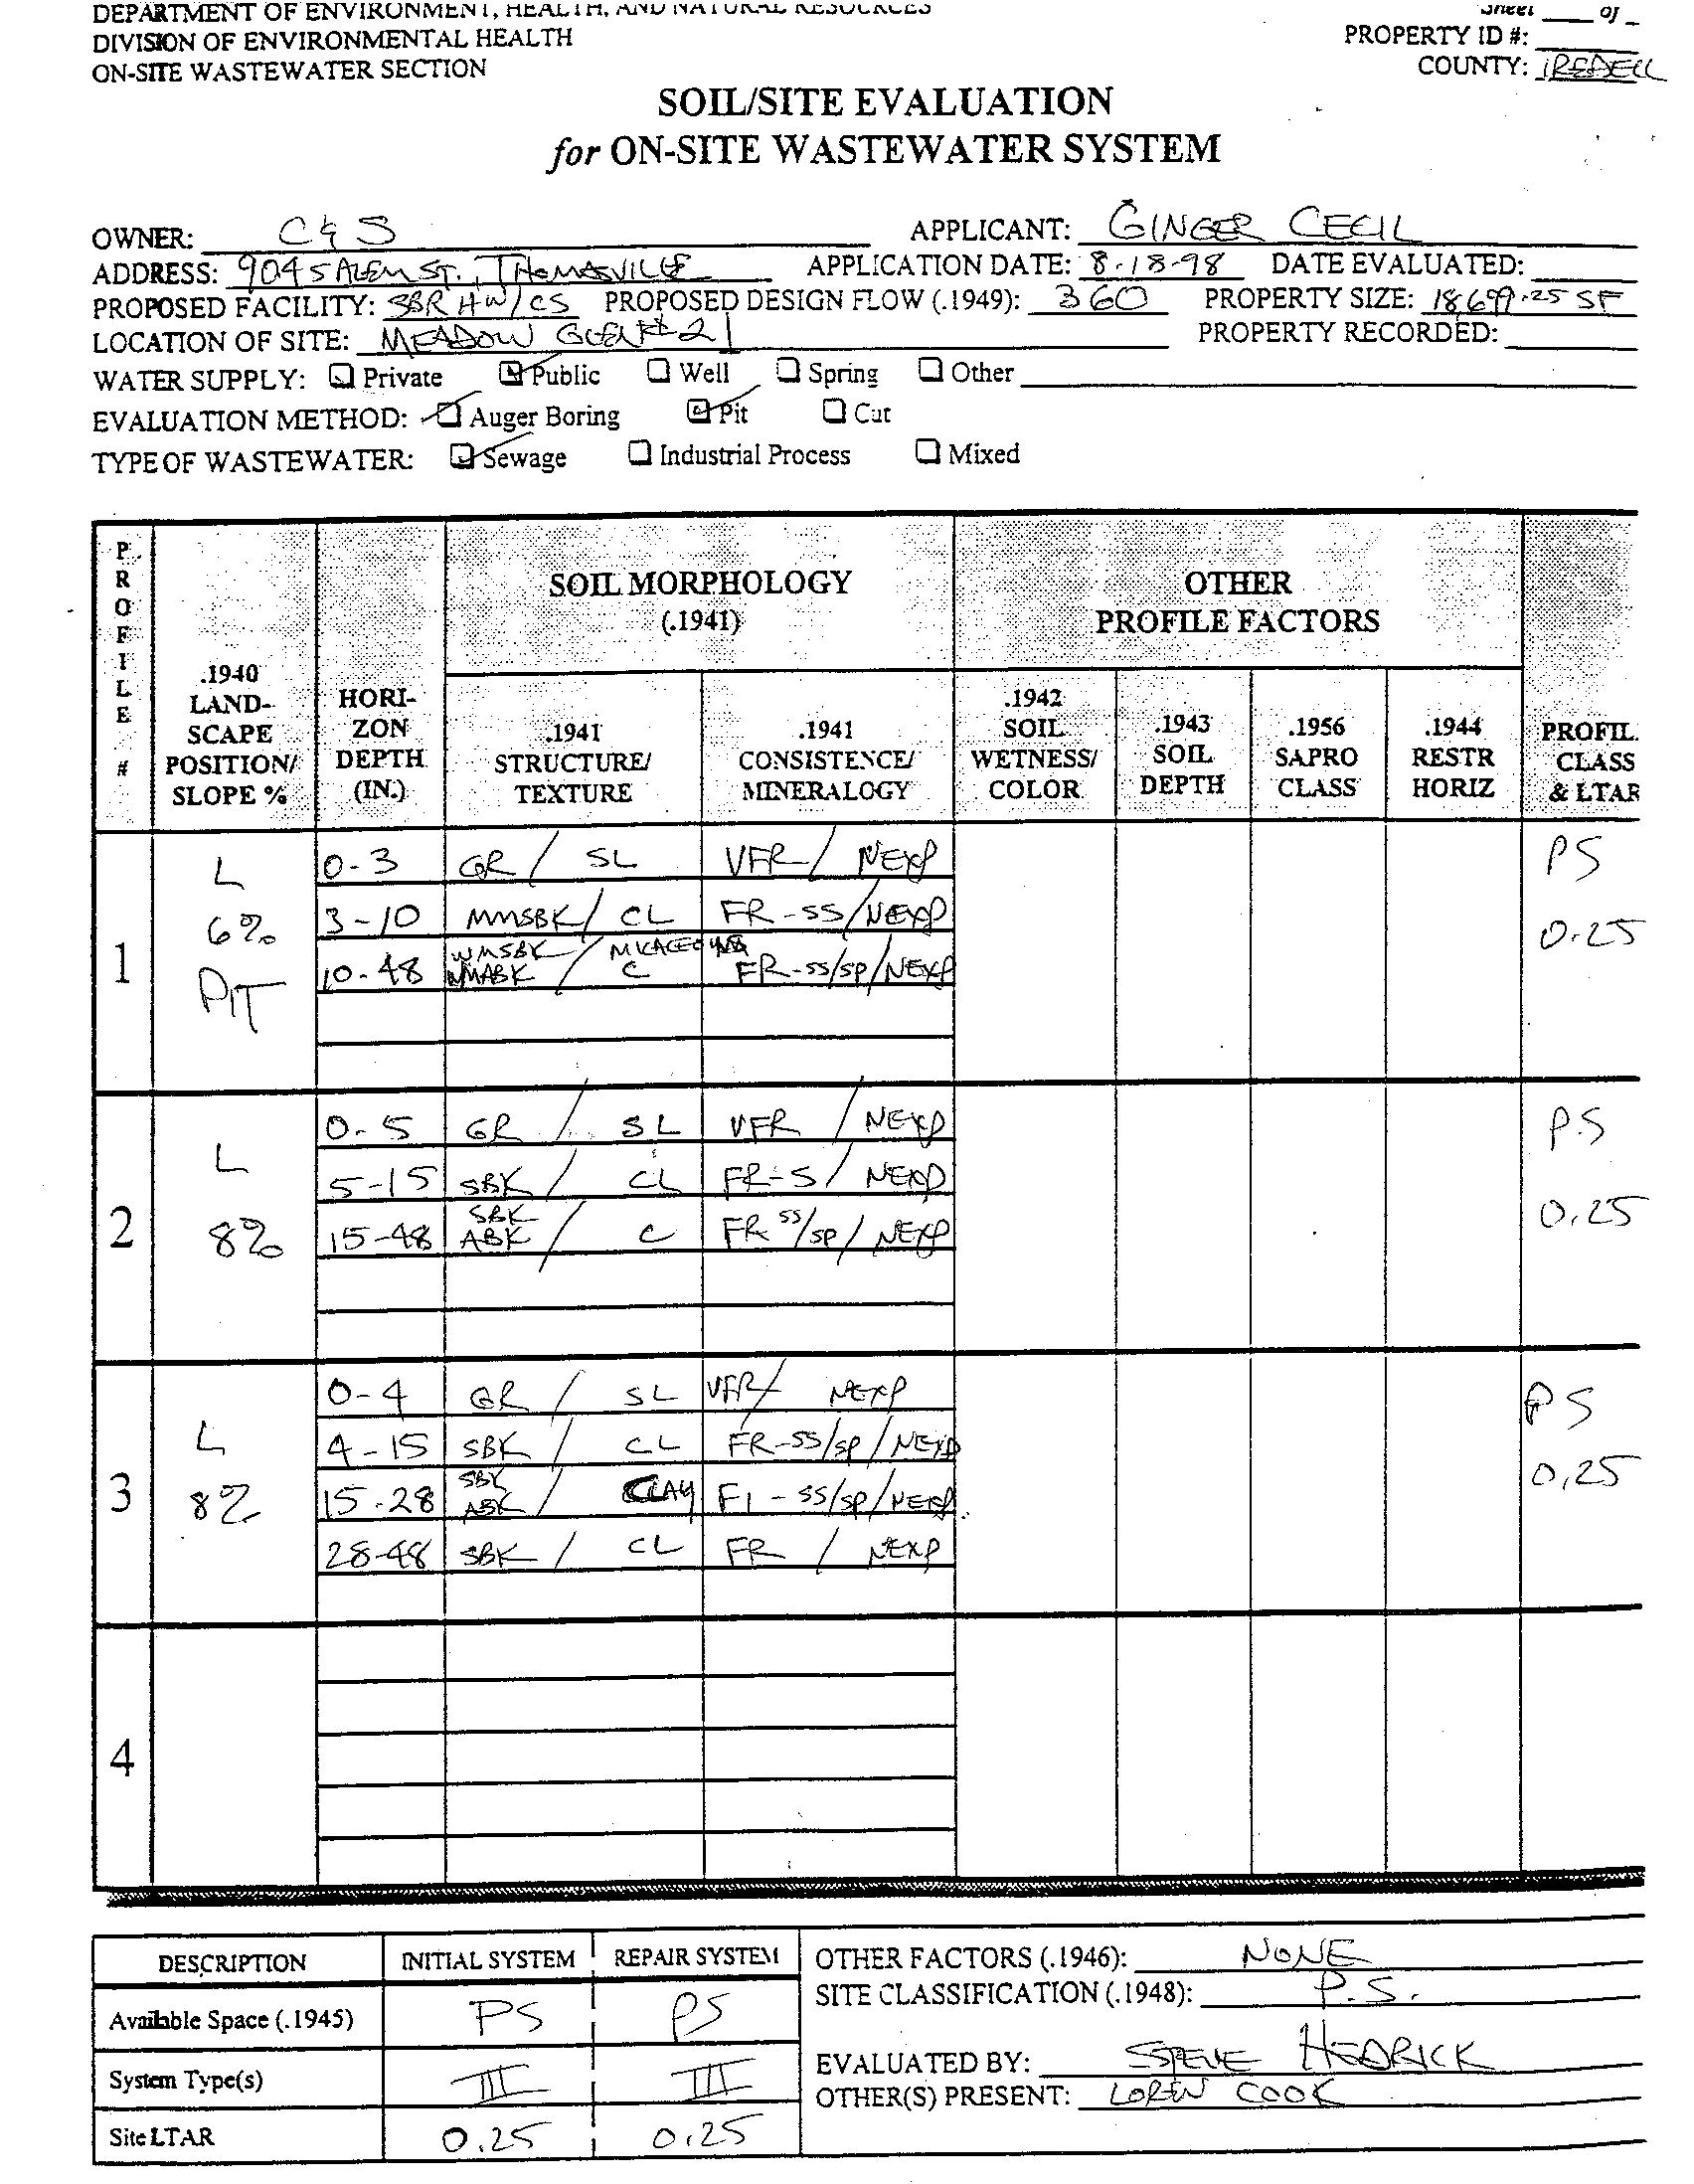 DEPARTMENT OF ENVIRONMENT, HEALTH, AND NATURAL RESOURCES
Sheet ____ of _
DIVISION OF ENVIRONMENTAL HEALTH
PROPERTY ID #:
ON-SITE WASTEWATER SECTION
COUNTY: IREDELL
SOIL/SITE EVALUATION
for ON-SITE WASTEWATER SYSTEM
OWNER: C & S APPLICANT: GINGER CECIL
ADDRESS: 904 SALEM ST., THOMASVILLE APPLICATION DATE: 8-18-98 DATE EVALUATED:
PROPOSED FACILITY: 3BR HW/CS PROPOSED DESIGN FLOW (.1949): 360 PROPERTY SIZE: 18,699.25 SF
LOCATION OF SITE: MEADOW GLEN #21 PROPERTY RECORDED:
WATER SUPPLY: Private Public Well Spring Other
EVALUATION METHOD: Auger Boring Pit Cut
TYPE OF WASTEWATER: Sewage Industrial Process Mixed
PROFILE #
.1940 LAND-SCAPE POSITION/ SLOPE %
HORI-ZON DEPTH (IN.)
SOIL MORPHOLOGY (.1941)
.1941 STRUCTURE/ TEXTURE
.1941 CONSISTENCE/ MINERALOGY
OTHER PROFILE FACTORS
.1942 SOIL WETNESS/ COLOR
.1943 SOIL DEPTH
.1956 SAPRO CLASS
.1944 RESTR HORIZ
PROFIL. CLASS & LTAR
1 L 6% PIT
0-3 GR / SL VFR / NEXP PS
3-10 MMSBK / CL FR-SS/NEXP 0.25
10-48 WMSBK WMABK / MICACEOUS C FR-SS/SP/NEXP
2 L 8%
0-5 GR / SL VFR / NEXP P.S
5-15 SBK / CL FR-S / NEXP
15-48 SBK ABK / C FR SS/SP / NEXP 0.25
3 L 8%
0-4 GR / SL VFR/ NEXP PS
4-15 SBK / CL FR-SS/SP / NEXP
15-28 SBK ABK / CLAY FI-SS/SP/NEXP 0.25
28-48 SBK / CL FR / NEXP
4
DESCRIPTION INITIAL SYSTEM REPAIR SYSTEM
Available Space (.1945) PS PS
System Type(s) III III
Site LTAR 0.25 0.25
OTHER FACTORS (.1946): NONE
SITE CLASSIFICATION (.1948): P.S.
EVALUATED BY: STEVE HEDRICK
OTHER(S) PRESENT: LOREN COOK